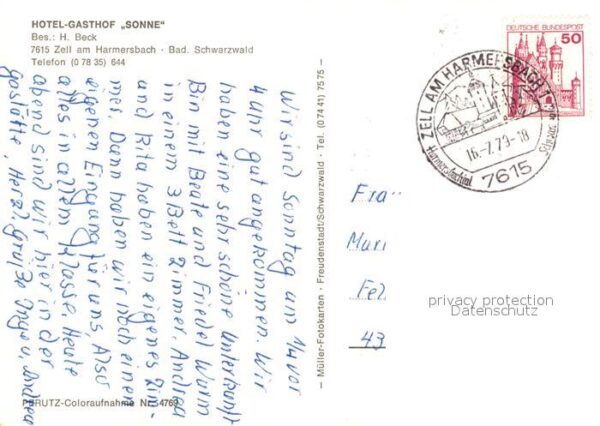 HOTEL-GASTHOF „SONNE"
Bes.: H. Beck
7615 Zell am Harmersbach · Bad. Schwarzwald
Telefon (0 78 35) 644
Wir sind Sonntag um 14 Uhr
gut angekommen. Wir
haben eine sehr schöne Unterkunft
Bin mit Beate und Friedel Wurm
in einem 3 Bett Zimmer. Andrea
und Rita haben ein eigenes Zim-
mer. Dann haben wir noch einen
eigenen Eingang für uns. Also
alles in allem Klasse. Heute
abend sind wir hier in der
Gaststätte, Herzl. Grüße Inge u. Andrea
PERUTZ-Coloraufnahme Nr. 4769
— Müller-Fotokarten · Freudenstadt/Schwarzwald · Tel. (07441) 7575 —
DEUTSCHE BUNDESPOST
50
ZELL AM HARMERSBACH 1
16.-7.79-18
7615
Frau
Mari
Fel
43
privacy protection
Datenschutz